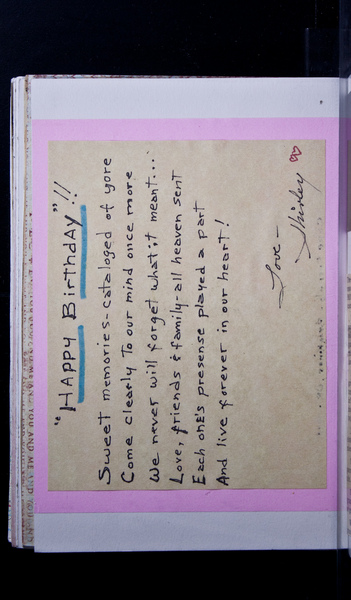 "HAPPY BirthdAY"!!
Sweet memories-cataloged of yore
Come clearly to our mind once more
We never will forget what it meant...
Love, friends & family-all heaven sent
Each onE's presense played a part
And live forever in our heart!
Love-
Shirley
YOU AND ME AND YOU